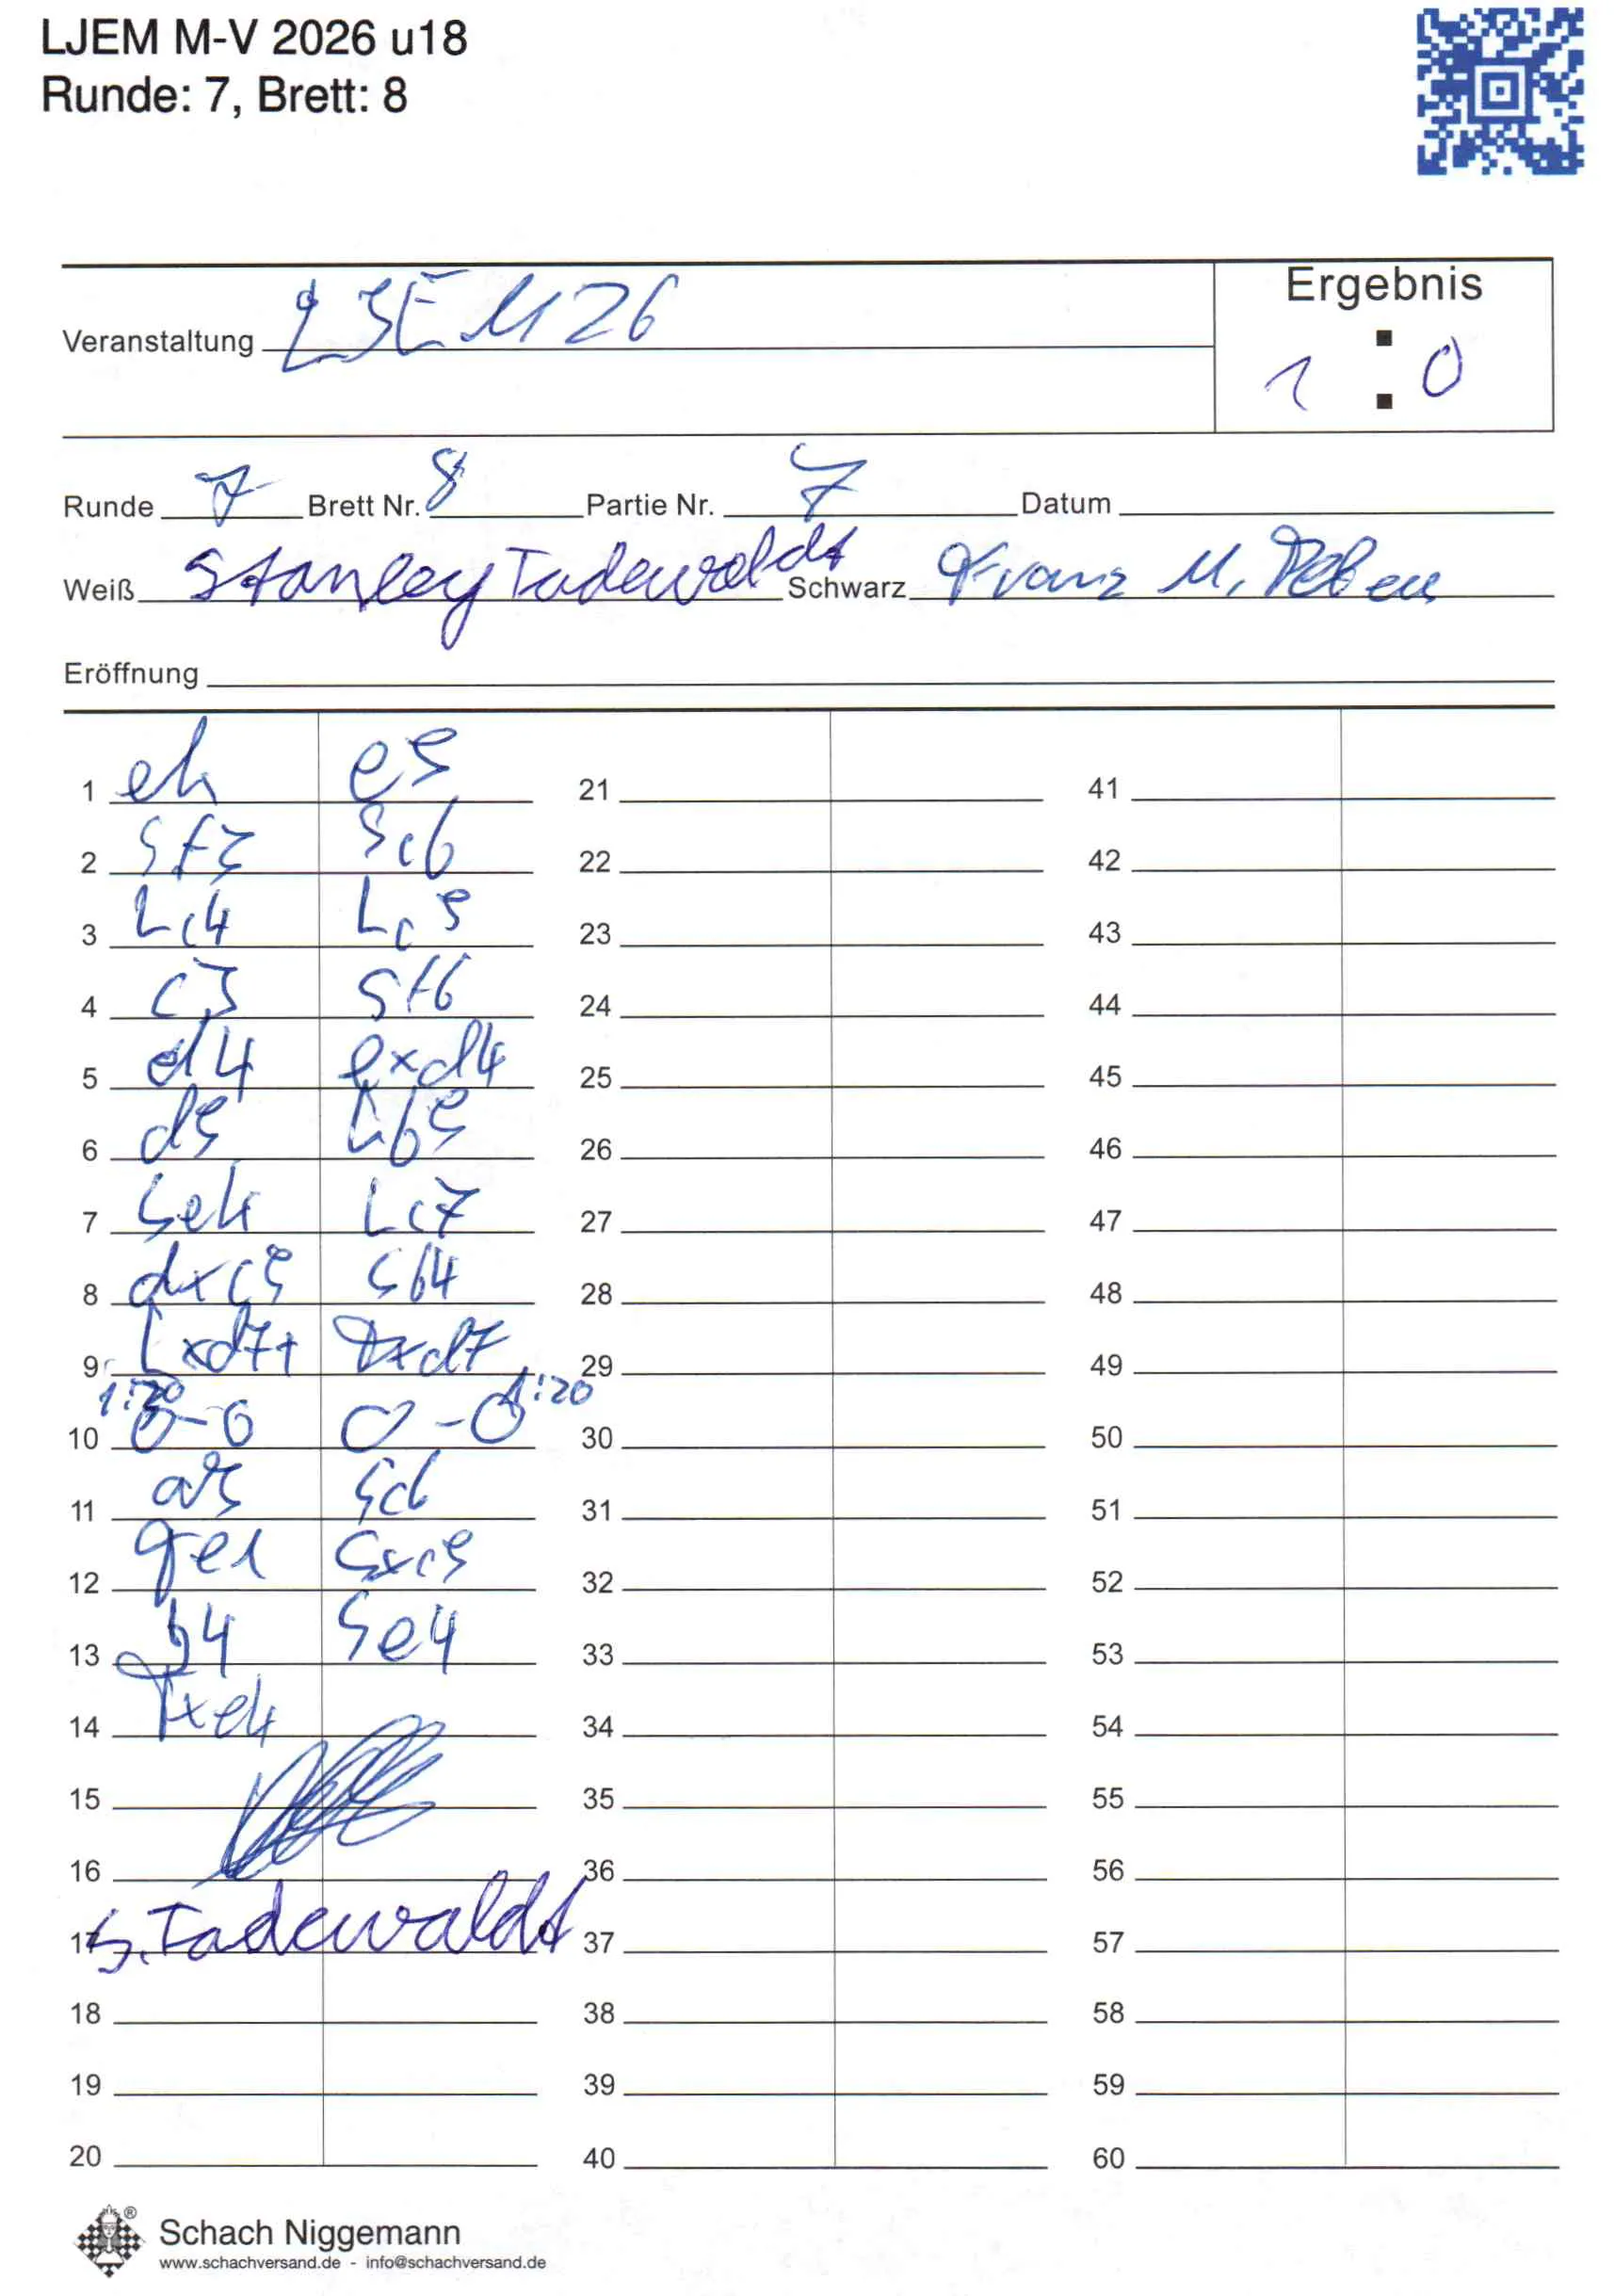 LJEM M-V 2026 u18
Runde: 7, Brett: 8
Ergebnis
Veranstaltung LJEM 26
1 : 0
Runde 7 Brett Nr. 8 Partie Nr. 7 Datum
Weiß Stanley Tadewaldt Schwarz Franz M.
Eröffnung
1 e4 e5 21 41
2 Sf3 Sc6 22 42
3 Lc4 Lc5 23 43
4 c3 Sf6 24 44
5 d4 exd4 25 45
6 d5 Lb5 26 46
7 Se4 Lc7 27 47
8 dxc5 Sb4 28 48
9 Lxd7+ Dxd7 29 49
1:20 1:20
10 0-0 0-0 30 50
11 Sc6 31 51
12 Sxc5 32 52
13 b4 Se4 33 53
14 Txe4 34 54
15 35 55
16 36 56
17 S. Tadewaldt 37 57
18 38 58
19 39 59
20 40 60
Schach Niggemann
www.schachversand.de - info@schachversand.de